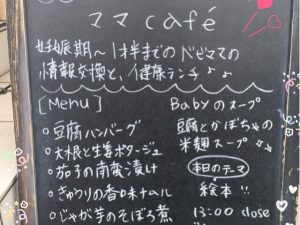 ママ café
妊娠期〜1才半までのドドドママの
情報交換と、健康ランチ♪♪
[Menu]
○豆腐ハンバーグ
○大根と生姜ポタージュ
○茄子の南蛮漬け
○きゅうりの香味ナムル
○じゃが芋のそぼろ煮
Babyのスープ
豆腐とかぼちゃの
米麹スープ
本日のテーマ
絵本!!
13:00 close